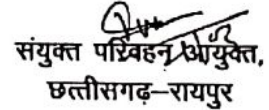 संयुक्त परिवहन आयुक्त,
छत्तीसगढ़–रायपुर